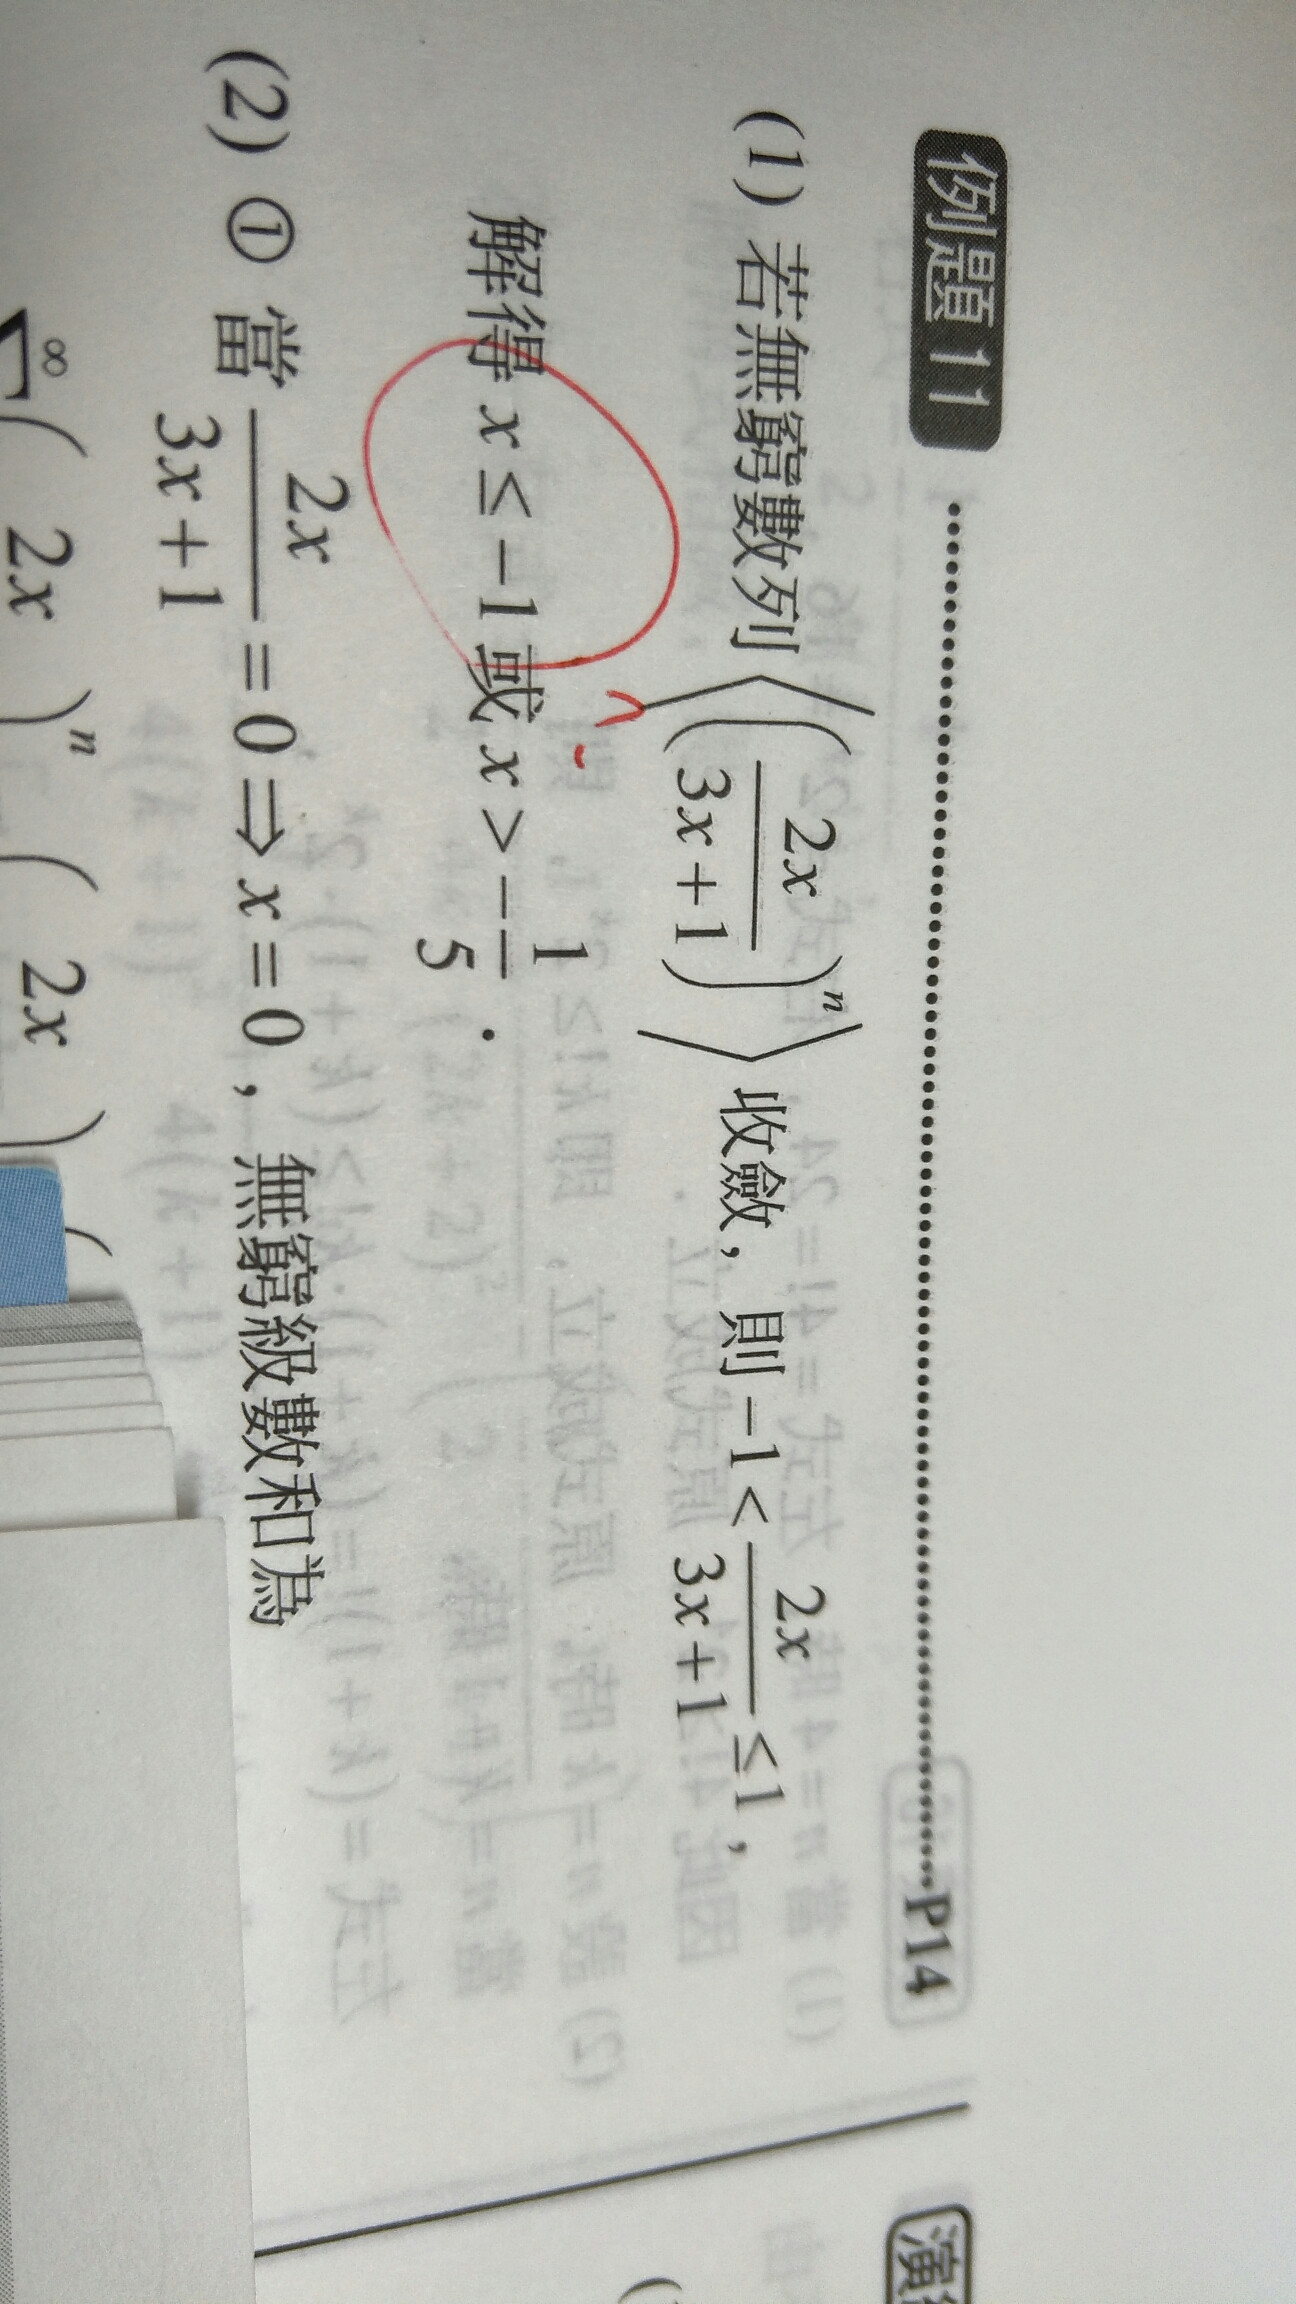 例題11 P14
(1) 若無窮數列⟨(2x/(3x+1))ⁿ⟩收斂，則 −1 < 2x/(3x+1) ≤ 1，
解得 x ≤ −1 或 x > −1/5．
(2) ① 當 2x/(3x+1) = 0 ⇒ x = 0，無窮級數和為
∞ ( 2x )ⁿ ( 2x )